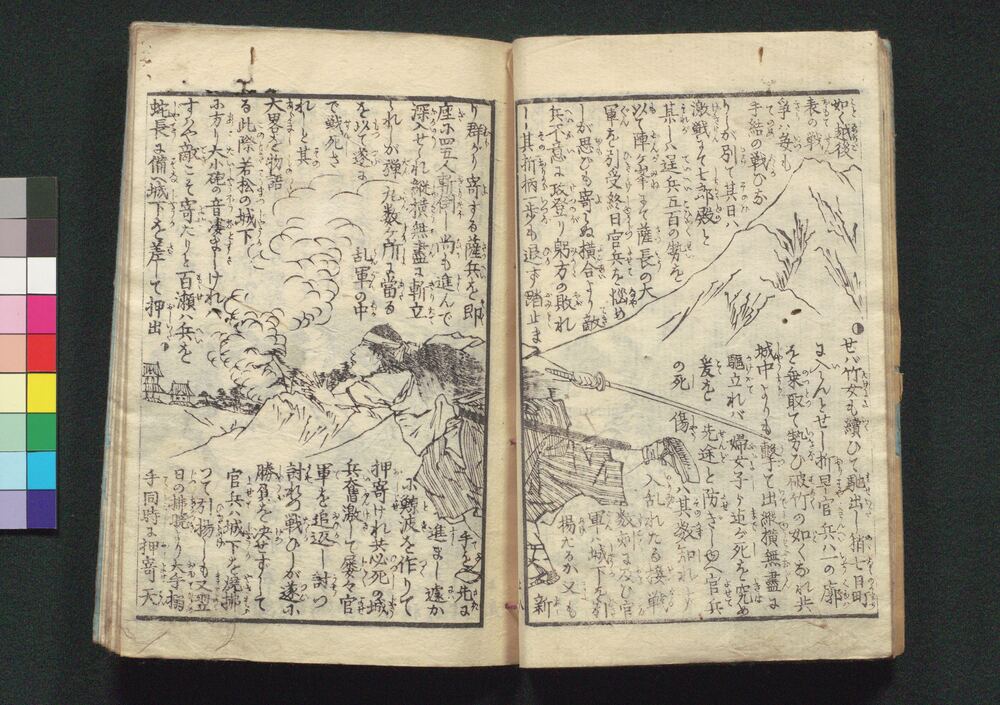 如く越後
表の戦
爭ひ毎も
手結の戦ひなか
りしが列て其日ハ
激戦にて七郎殿と
其しハ逞兵五百の勢を
以て陣を峯にて薩長の大
軍を列受終日官兵を悩め
しが思ひも寄らぬ横合より敵
兵不意に攻登り躬方の敗れ
其折柄一歩も退ず踏止ま
り群がり寄する薩兵を即
座に四五人斬倒し尚も進んで
深入せられ縦横無盡に斬立
られしが弾丸数ヶ所に當る
を以て遂に乱軍の中
で戦死さ
れしと其
大畧を物語
る此際若松の城下
の方より大小砲の音凄ましけれバ
すハや敵こそ寄たりと百瀬ハ兵を
蛇長に備へ城下を差して押出
せバ竹女も續ひて馳出し稍七日町
に入んとせし折早官兵ハ一の廓
を乗取て勢ひ破竹の如くなれ共
城中よりも撃て出縦横無盡に
駈立れバ婦女子ハ迫が死を究め
爰を先途と防ぎしかバ官兵
の死傷其数知れず
入乱れたる接戦
数刻に及び官
軍ハ城下を引
揚たるか又も
新手を先に
進まし遽か
に鯨波を作りて
押寄けれ共必死の城
兵奮激して屡々官
軍を追返し討つ
討れつ戦ひしが遂に
勝負を決せずして
官兵ハ城下を焼拂
つて引揚しも又翌
日拂暁より大手搦
手同時に押寄天